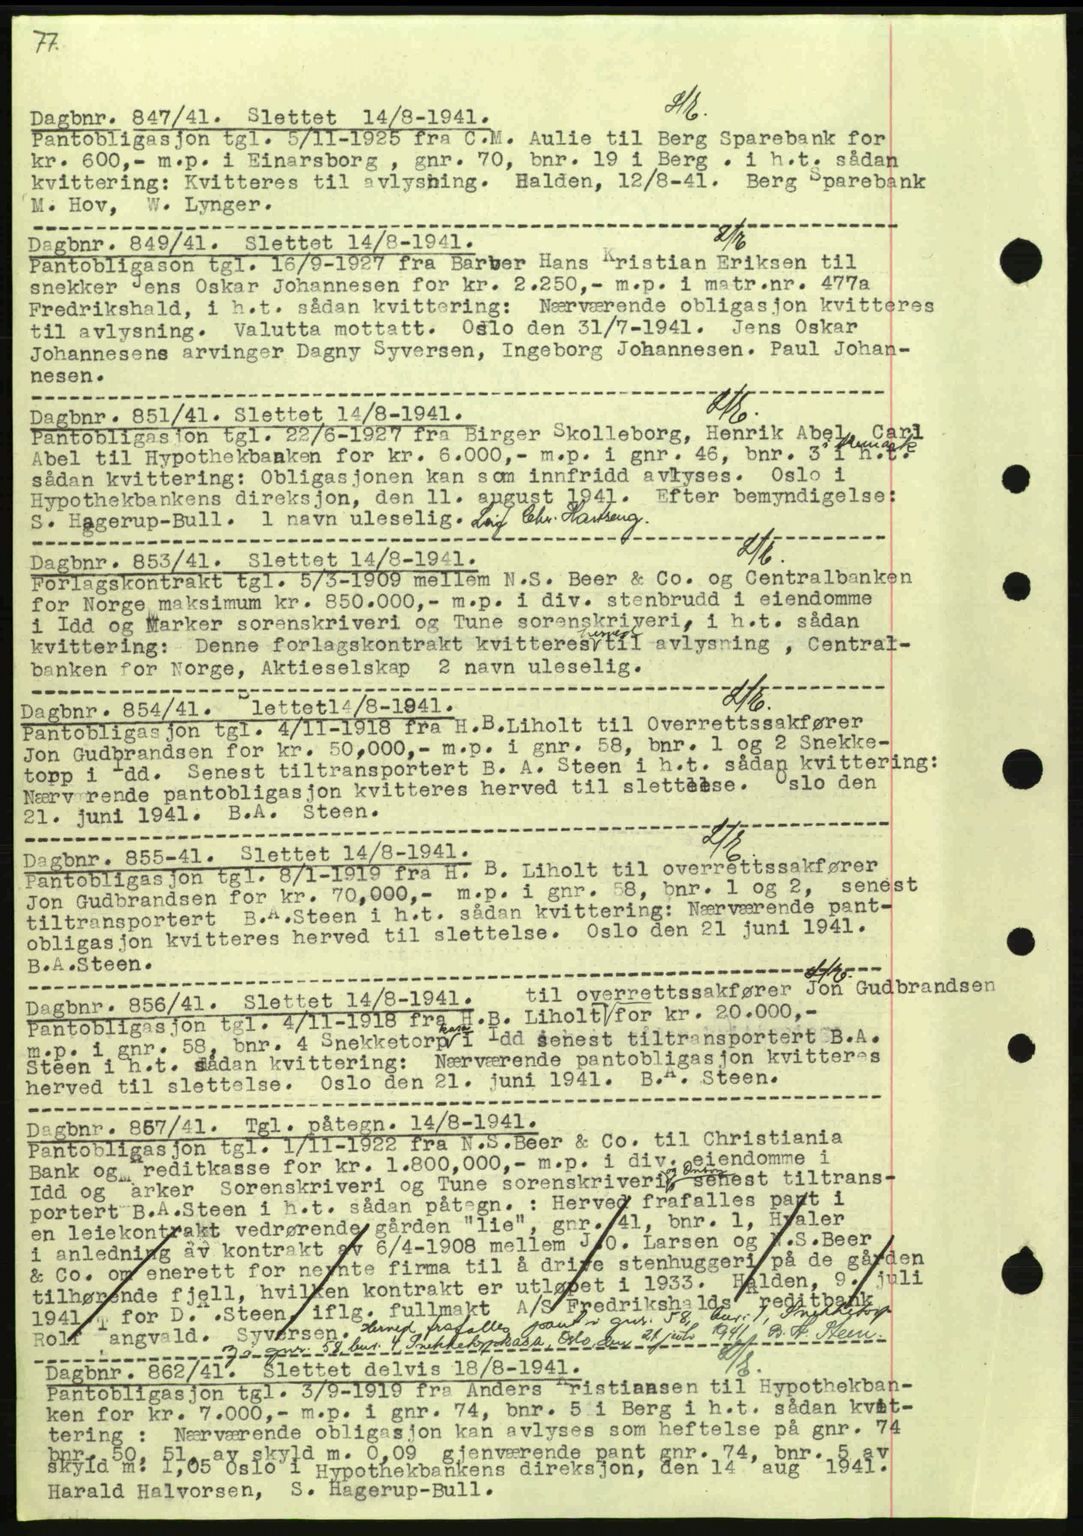 77.
Dagbnr. 847/41. Slettet 14/8-1941.
Pantobligasjon tgl. 5/11-1925 fra C.M. Aulie til Berg Sparebank for
kr. 600,- m.p. i Einarsborg , gnr. 70, bnr. 19 i Berg . i h.t. sådan
kvittering: Kvitteres til avlysning. Halden, 12/8-41. Berg Sparebank
M. Hov, W. Lynger.
Dagbnr. 849/41. Slettet 14/8-1941.
Pantobligason tgl. 16/9-1927 fra Barber Hans Kristian Eriksen til
snekker Jens Oskar Johannesen for kr. 2.250,- m.p. i matr.nr. 477a
Fredrikshald, i h.t. sådan kvittering: Nærværende obligasjon kvitteres
til avlysning. Valutta mottatt. Oslo den 31/7-1941. Jens Oskar
Johannesens arvinger Dagny Syversen, Ingeborg Johannesen. Paul Johan-
nesen.
Dagbnr. 851/41. Slettet 14/8-1941.
Pantobligasjon tgl. 22/6-1927 fra Birger Skolleborg, Henrik Abel, Carl
Abel til Hypothekbanken for kr. 6.000,- m.p. i gnr. 46, bnr. 3 i h.t.
sådan kvittering: Obligasjonen kan som innfridd avlyses. Oslo i
Hypothekbankens direksjon, den 11. august 1941. Efter bemyndigelse:
S. Hagerup-Bull. 1 navn uleselig.
Dagbnr. 853/41. Slettet 14/8-1941.
Forlagskontrakt tgl. 5/3-1909 mellem N.S. Beer & Co. og Centralbanken
for Norge maksimum kr. 850.000,- m.p. i div. stenbrudd i eiendomme
i Idd og Marker sorenskriveri og Tune sorenskriveri, i h.t. sådan
kvittering: Denne forlagskontrakt kvitteres herved til avlysning , Central-
banken for Norge, Aktieselskap 2 navn uleselig.
Dagbnr. 854/41. Slettet14/8-1941.
Pantobligasjon tgl. 4/11-1918 fra H.B.Liholt til Overrettssakfører
Jon Gudbrandsen for kr. 50,000,- m.p. i gnr. 58, bnr. 1 og 2 Snekke-
torp i Idd. Senest tiltransportert B. A. Steen i h.t. sådan kvittering:
Nærv rende pantobligasjon kvitteres herved til slettelse. Oslo den
21. juni 1941. B.A. Steen.
Dagbnr. 855-41. Slettet 14/8-1941.
Pantobligasjon tgl. 8/1-1919 fra H. B. Liholt til overrettssakfører
Jon Gudbrandsen for kr. 70,000,- m.p. i gnr. 58, bnr. 1 og 2, senest
tiltransportert B.A.Steen i h.t. sådan kvittering: Nærværende pant-
obligasjon kvitteres herved til slettelse. Oslo den 21 juni 1941.
B.A.Steen.
Dagbnr. 856/41. Slettet 14/8-1941. til overrettssakfører Jon Gudbrandsen
Pantobligasjon tgl. 4/11-1918 fra H.B. Liholt for kr. 20.000,-
m.p. i gnr. 58, bnr. 4 Snekketorp i Idd senest tiltransportert B.A.
Steen i h.t. sådan kvittering: Nærværende pantobligasjon kvitteres
herved til slettelse. Oslo den 21. juni 1941. B.A. Steen.
Dagbnr. 857/41. Tgl. påtegn. 14/8-1941.
Pantobligasjon tgl. 1/11-1922 fra N.S.Beer & Co. til Christiania
Bank og Kreditkasse for kr. 1.800,000,- m.p. i div. eiendomme i
Idd og Marker Sorenskriveri og Tune sorenskriveri, senest tiltrans-
portert B.A.Steen i h.t. sådan påtegn. : Herved frafalles pant i
en leiekontrakt vedrørende gården "lie", gnr. 41, bnr. 1, Hvaler
i anledning av kontrakt av 6/4-1908 mellem J.O. Larsen og N.S.Beer
& Co. om enerett for nevnte firma til å drive stenhuggeri på de gården
tilhørende fjell, hvilken kontrakt er utløpet i 1933. Halden, 9. juli
1941 for D.A.Steen iflg. fullmakt A/S Fredrikshalds Kreditbank
Rolf Tangvald. Syversen. Herved frafalles pant i gnr. 58, bnr. 1, Snekketorp
og gnr. 58, bnr. 4 Snekketorp Oslo den 21 juli 1941 B.A. Steen.
Dagbnr. 862/41. Slettet delvis 18/8-1941.
Pantobligasjon tgl. 3/9-1919 fra Anders Kristiansen til Hypothekban-
ken for kr. 7.000,- m.p. i gnr. 74, bnr. 5 i Berg i h.t. sådan kvit-
tering : Nærværende obligasjon kan avlyses som heftelse på gnr. 74
bnr. 50, 51, av skyld m. 0,09 gjenværende pant gnr. 74, bnr. 5 av
skyld m. 1,05 Oslo i Hypothekbankens direksjon, den 14 aug 1941.
Harald Halvorsen, S. Hagerup-Bull.